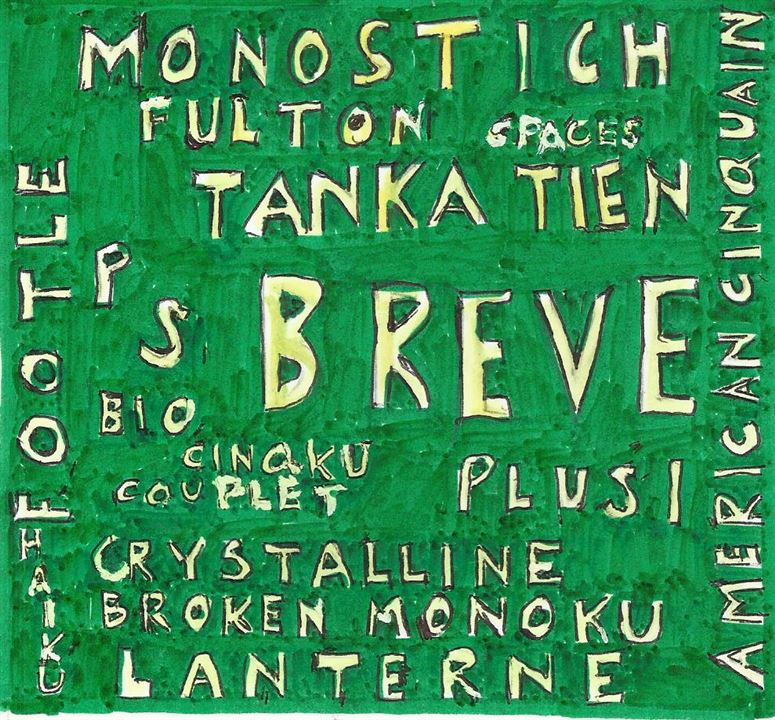 MONOSTICH
FULTON SPACES
TANKA TIEN
AMERICAN CINQUAIN
FOOTLE
PS
BREVE
BIO
CINQKU
COUPLET
PLUSI
HAIKU
CRYSTALLINE
BROKEN MONOKU
LANTERNE